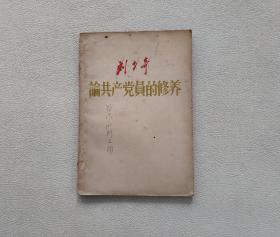 刘少奇
論共产党員的修养